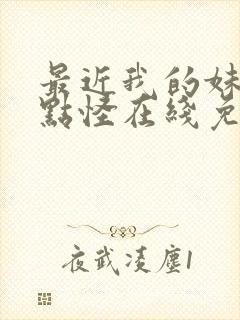 最近我的妹
點怪在綫免
夜武凌塵1